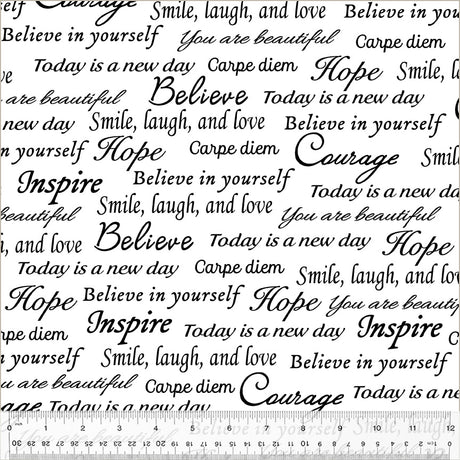 Courage Smile, laugh, and love Believe in you
Believe in yourself You are beautiful Carpe diem
Today is a new day Carpe diem Hope Smile, l
are beautiful Believe Today is a new day
new day Smile, laugh, and love Believe in yourself
n yourself Hope Carpe diem Courage Smil
Inspire Believe in yourself Today is a new da
beautiful Smile, laugh, and love You are beautiful
, and love Believe Today is a new day Hope
Today is a new day Carpe diem Smile, laugh, and lov
Hope Believe in yourself Hope You are beautif
rpe diem Inspire Today is a new day Inspire
yourself Smile, laugh, and love Believe in yourself
u are beautiful Carpe diem Courage Today is a n
age Today is a new day
0 1 2 3 4 5 6 7 8 9 10 11 12
Believe in yourself Smile, laugh